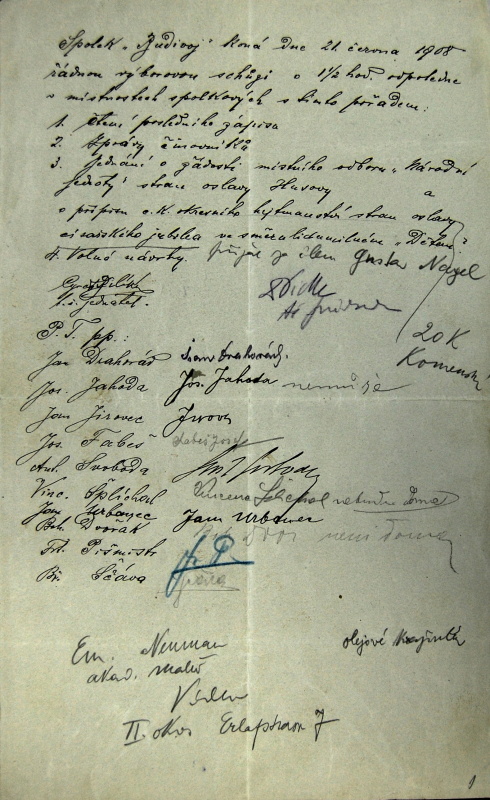 Spolek „Budivoj" koná dne 21. června 1908
řádnou výborovou schůzi o 1½ hod. odpoledne
v místnostech spolkových s tímto pořadem:
1. čtení posledního zápisu
2. Zprávy činovníků
3. jednání o žádosti místního odboru „Národní
jednoty" stran oslavy Husovy a
o přípisu c. k. okresního hejtmanství stran oslavy
císařského jubilea ve směru lidumilném „Dětem"
4. Volné návrhy. přijat za člena Gusta Nagel
t. č. jednatel.
20 K
Komenský
P. T. pp.:
Jan Drahorád
Jos. Jahoda Jos. Jahoda nemůže
Jan Jirovec Jirovec
Jos. Fabeš Fabeš Josef
Ant. Svoboda Ant. Svoboda
Vinc. Šplíchal Vincenc Šplíchal nebude doma
Jan Urbanec Jan Urbanec
Boh. Dvořák není doma
Frt. Pismistr
Bř. Ščáva
Em. Neuman
akad. malíř
Vídeň
II. okres 7
olejové